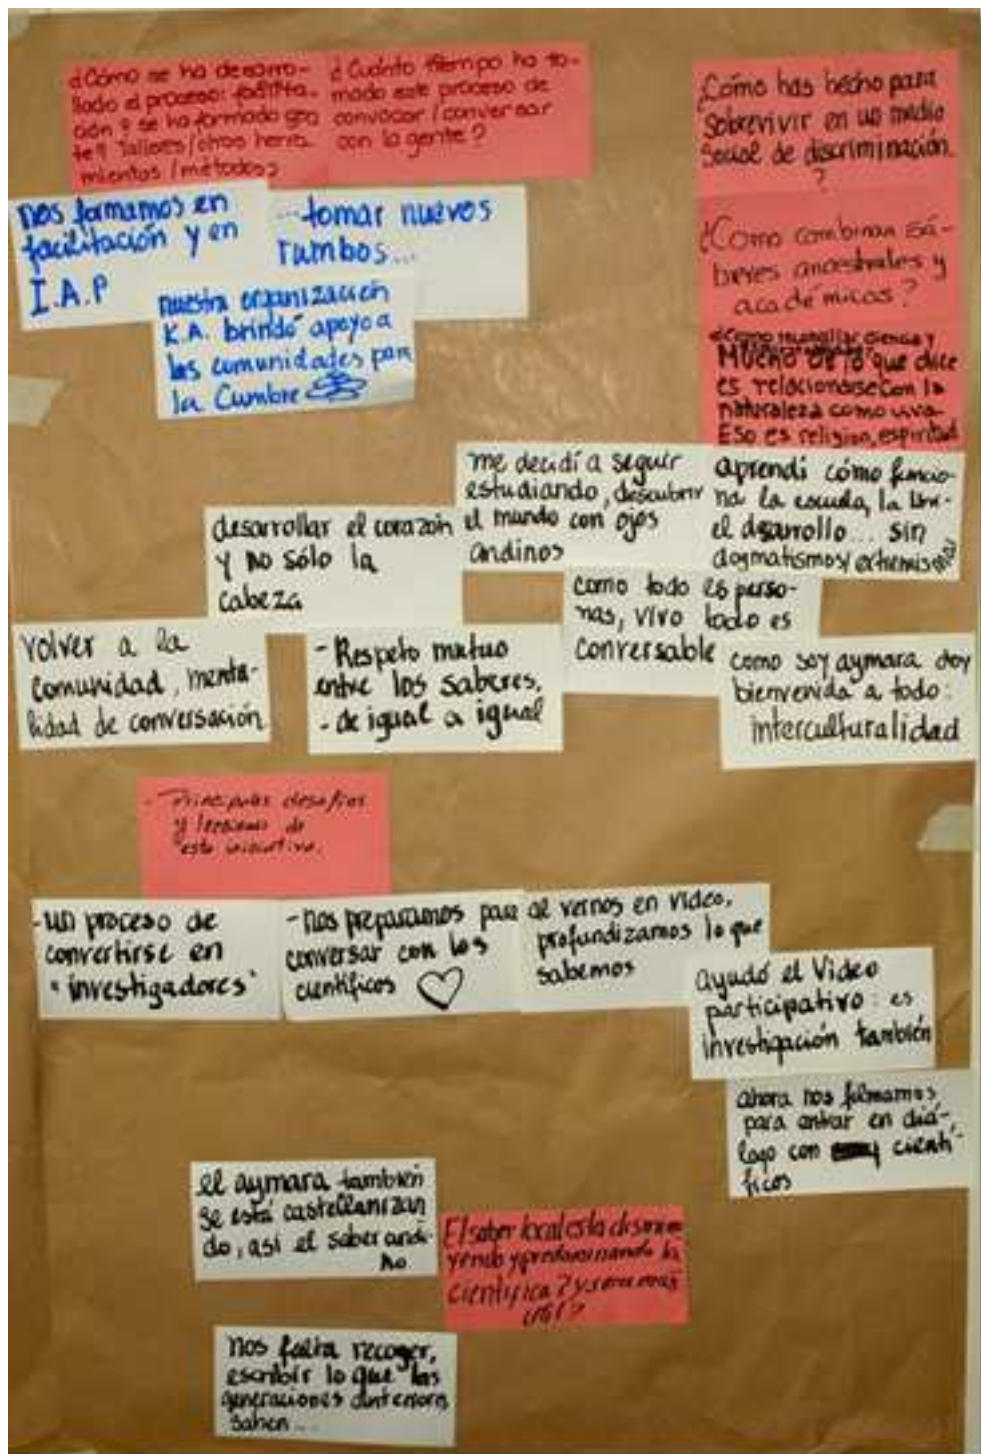 ¿Cómo se ha desarro-
llado el proceso: facilita-
ción? se ha formado gen
te? Talleres/otros herra-
mientas/métodos?
¿Cuánto tiempo ha to-
mado este proceso de
convocar/conversar
con la gente?
¿Cómo has hecho para
Sobrevivir en un medio
Social de discriminación
?
¿Como combinan sa-
beres ancestrales y
académicos?
¿Como ciencia y
Mucho de lo que dice
es relacionarse con la
naturaleza como viva
Eso es religion, espiritual
nos formamos en
facilitación y en
I.A.P
...tomar nuevos
rumbos...
nuestra organización
K.A. brindó apoyo a
las comunidades para
la Cumbre
me decidí a seguir
estudiando, descubrir
el mundo con ojos
andinos
aprendí cómo funcio-
na la escuela, la Uni-
el dsarrollo... sin
dogmatismos/extremismos
desarrollar el corazón
y no sólo la
cabeza
como todo es perso-
nas, vivo todo es
conversable
volver a la
comunidad, menta-
lidad de conversación
- Respeto mutuo
entre los saberes.
- de igual a igual
como soy aymara doy
bienvenida a todo:
interculturalidad
- Principales desafios
y lecciones de
esta iniciativa.
- un proceso de
convertirse en
"investigadores"
- nos preparamos para
conversar con los
científicos
al vernos en video,
profundizamos lo que
sabemos
ayudó el Video
participativo: es
investigación también
ahora nos filmamos
para entrar en diá-
logo con cientí-
ficos
el aymara también
se está castellanizan
do, asi el saber andi-
no
El saber local esta disminu
yendo y predominando la
cientifica? y sera mas
util?
nos falta recoger,
escribir lo que las
generaciones anteriores
saben...